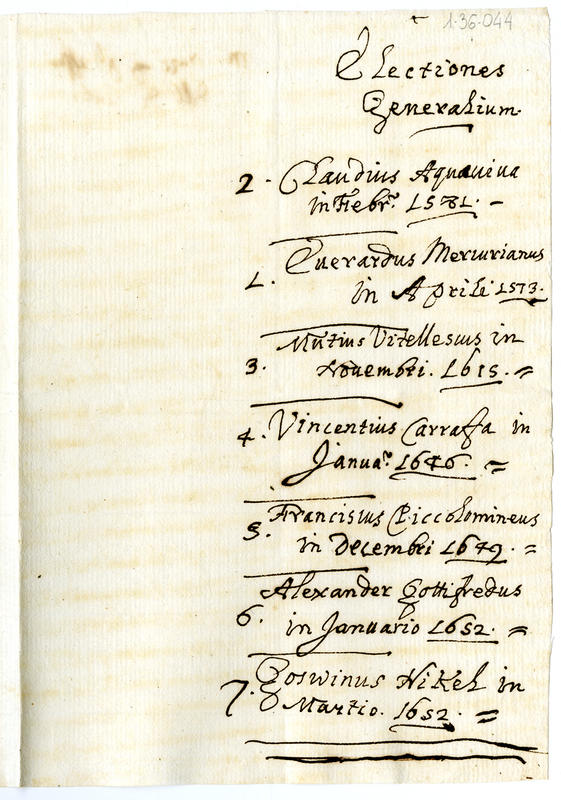 1-36-044
Electiones
Generalium
2. Claudius Aquauiua
in Febr. 1581.
1. Euerardus Mercurianus
in Aprili 1573.
3. Mutius Vitellescus in
Nouembri. 1615.
4. Vincentius Carraffa in
Janua. 1646.
5. Franciscus Piccolomineus
in Decembri 1649.
6. Alexander Gottifredus
in Januario 1652.
7. Goswinus Nikel in
Martio. 1652.